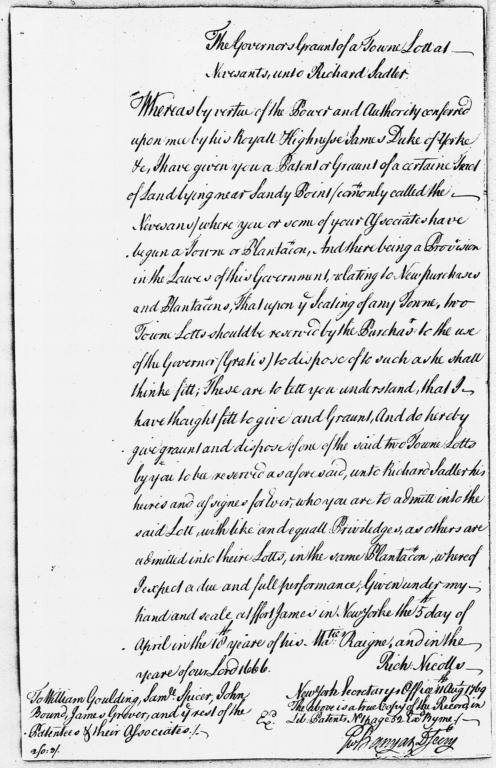 The Governors Graunt of a Towne Lott at
Nevesants, unto Richard Sadler.
Whereas by vertue of the Power and Authority conferred
upon mee by his Royall Highnesse James Duke of Yorke
&c, I have given you a Patent or Graunt of a certaine Tract
of Land lying near Sandy Point /comonly called the
Nevesans/ where you or some of your Associates have
begun a Towne or Plantacon, And there being a Provision
in the Lawes of this Government, relating to New purchases
and Plantacons, That upon ye Seating of any Towne, two
Towne Lotts should be reserved by the Purchasrs to the use
of the Governor /Gratis/ to dispose of to such as he shall
thinke fitt; These are to lett you understand, that I
have thought fitt to give and Graunt, And do hereby
give graunt and dispose of one of the said two Towne Lotts
by you to bee reserved as aforesaid, unto Richard Sadler his
heires and assignes for Ever, who you are to admitt into the
said Lott, with like and equall Priviledges, as others are
admitted into theire Lotts, in the same Plantacon, whereof
I expect a due and full performance; Given under my
hand and seale, at ffort James in New Yorke the 5th day of
April in the 18th yeare of his Maties Raigne, and in the
yeare of our Lord 1666.
Rich Nicolls
To William Goulding, Saml Spicer, John
Bound, James Grover, and ye rest of the
Patentees & their Associates./.
New York Secretarys Office 11th Aug 1769
The above is a true Copy of the Record in
Lib. Patents, No 1 page 32. Exd By me /.
Exd.
Gw Banyar D Secry